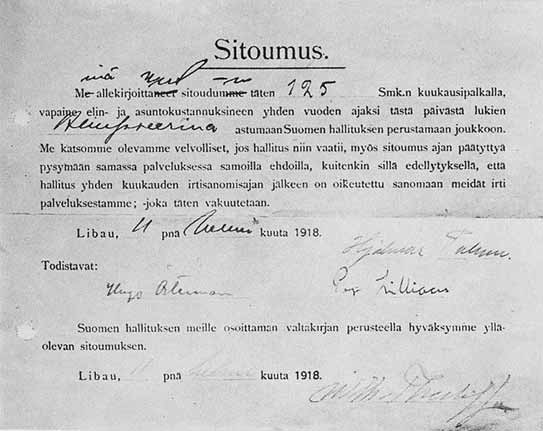 Sitoumus.
minä -n
Me allekirjoittaneet sitoudumme täten 125 Smk.n kuukausipalkalla,
vapaine elin- ja asuntokustannuksineen yhden vuoden ajaksi tästä päivästä lukien
astumaan Suomen hallituksen perustamaan joukkoon.
Me katsomme olevamme velvolliset, jos hallitus niin vaatii, myös sitoumus ajan päätyttyä
pysymään samassa palveluksessa samoilla ehdoilla, kuitenkin sillä edellytyksellä, että
hallitus yhden kuukauden irtisanomisajan jälkeen on oikeutettu sanomaan meidät irti
palveluksestamme; -joka täten vakuutetaan.
Libau, 11 pnä helmi kuuta 1918.
Hjalmar
Todistavat:
Hugo
Suomen hallituksen meille osoittaman valtakirjan perusteella hyväksymme yllä-
olevan sitoumuksen.
Libau, 11 pnä helmi kuuta 1918.